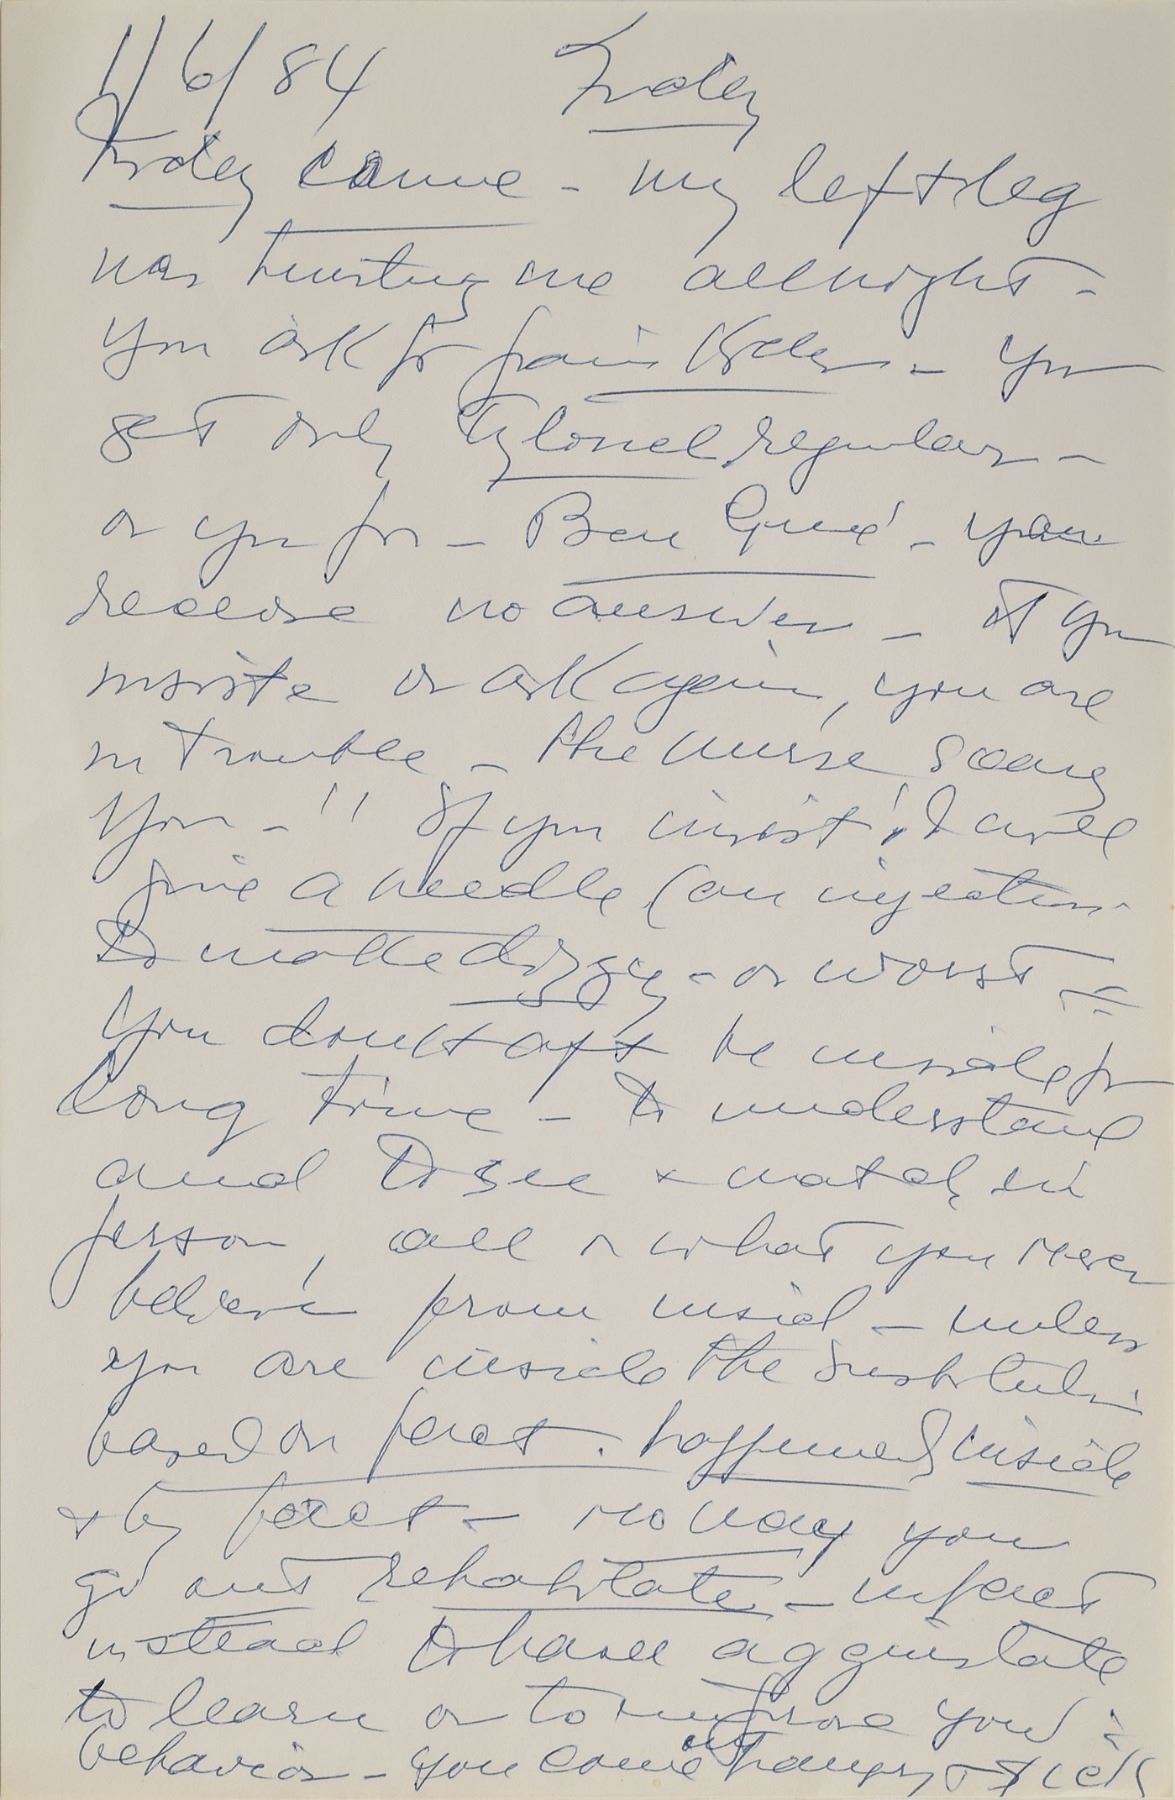 1/6/84 Friday
Friday came - my left leg
was hurting me all night -
you ask for pain killer - you
get only Tylonel regular -
or you for - Ben Gué - you
receive no answer - If you
insiste or ask again, you are
in trouble - the nurse
you - " If you insist! I will
give a needle (an injection
to make dizzy - or worst =
you don't be inside for
long time - to understand
and to see & watch in
person, all what you never
believe from insid - unless
you are inside the Institution
based on fact. happened inside
& by fact - no way you
go out rehabitate - infact
instead to have
to learn or to improve you
behavior - you come out hangry & sick